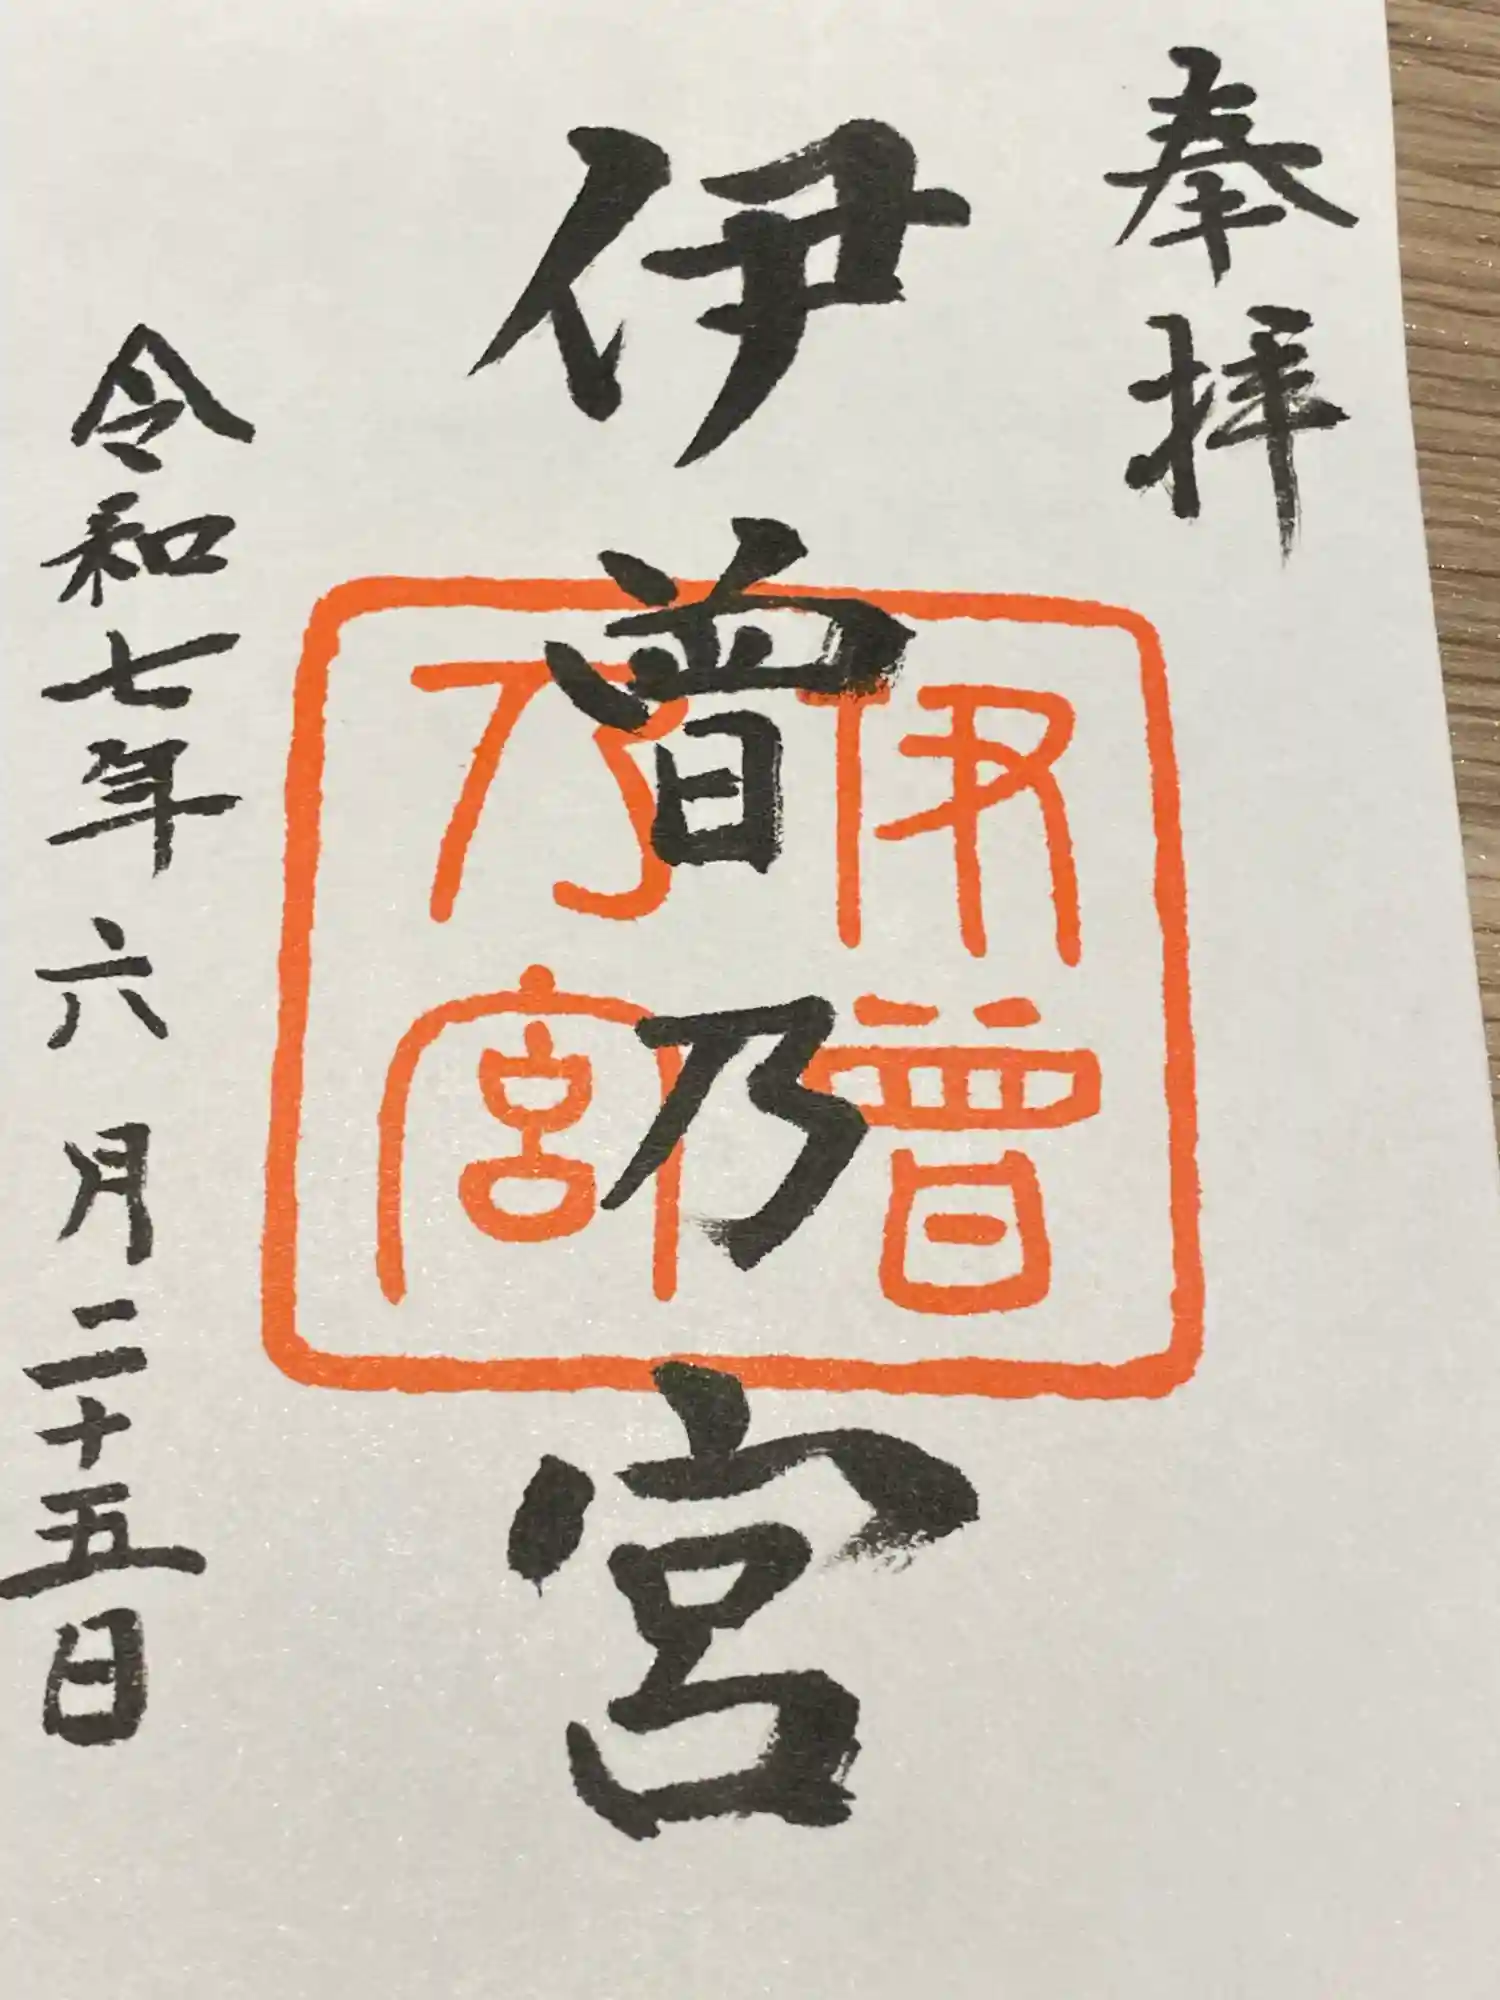 奉拝
伊曽乃宮
伊曽
乃宮
令和七年六月二十五日